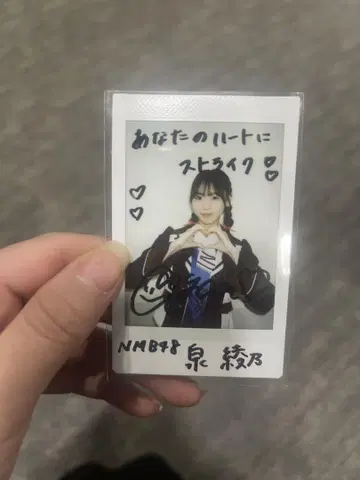 あなたのハートに
ストライク♡♡
NMB48 泉 綾乃